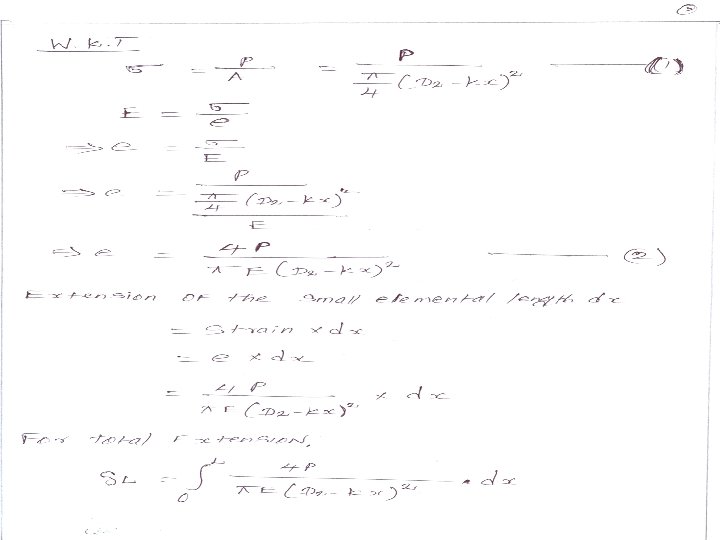 (3)
W.K.T
σ = P/A = P / (π/4 (D2 - kx)²) (1)
E = σ/e
⇒ e = σ/E
⇒ e = (P / (π/4 (D2 - kx)²)) / E
⇒ e = 4P / (π E (D2 - kx)²) (2)
Extension of the small elemental length dx
= Strain × dx
= e × dx
= 4P / (π E (D2 - kx)²) × dx
For total Extension,
δL = ∫₀ᴸ 4P / (π E (D2 - kx)²) · dx